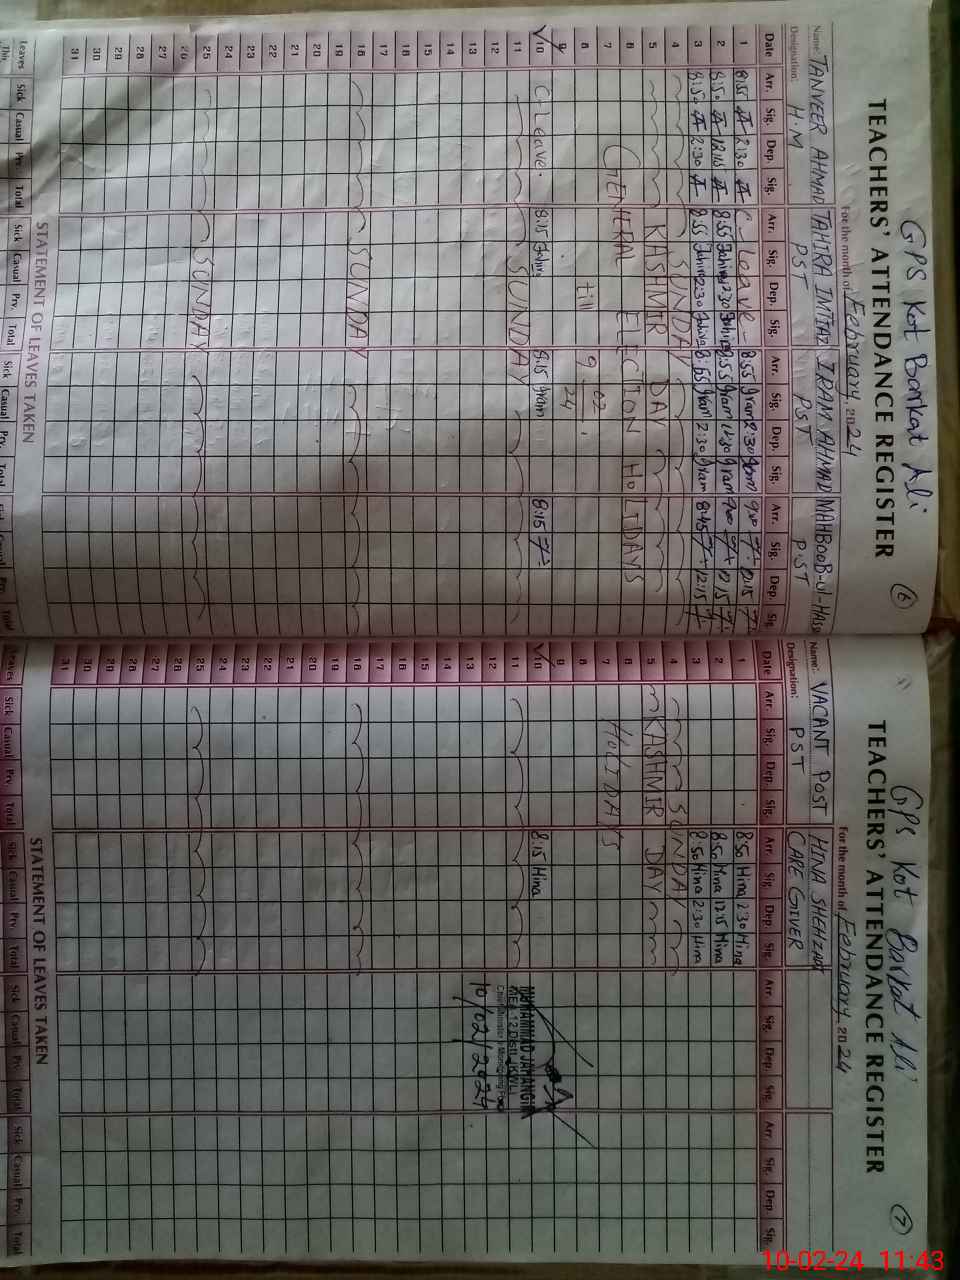 GPS Kot Barkat Ali
6
TEACHERS' ATTENDANCE REGISTER
For the month of February, 2024
Name: TANVEER AHMAD TAHIRA IMTIAZ IRAM AHMAD MAHBOOB-ul-HASSAN
Designation: H.M PST PST PST
Date Arr. Sig. Dep. Sig. Arr. Sig. Dep. Sig. Arr. Sig. Dep. Sig. Arr. Sig. Dep. Sig.
1 8:55 2:30 C-Leave - 8:55 Iram 2:30 Iram 9:00 12:15
2 8:50 12:15 8:55 Tahira 12:30 Tahira 8:55 Iram 12:30 Iram 9:00 12:15
3 8:50 2:30 8:55 Tahira 2:30 Tahira 8:55 Iram 2:30 Iram 8:45 12:15
4 SUNDAY
5 KASHMIR DAY
6 GENERAL ELECTION HOLIDAYS
7
8 till 9/02/24
9
10 C-Leave. 8:15 Tahira 8:15 Iram 8:15
11 SUNDAY
12
13
14
15
16
17
18 SUNDAY
19
20
21
22
23
24
25 SUNDAY
26
27
28
29
30
31
STATEMENT OF LEAVES TAKEN
Leaves Sick Casual Prv. Total Sick Casual Prv. Total Sick Casual Prv. Total Sick Casual Prv. Total
This
GPS Kot Barkat Ali
7
TEACHERS' ATTENDANCE REGISTER
For the month of February, 2024
Name: VACANT POST HINA SHEHZADI
Designation: PST CARE GIVER
Date Arr. Sig. Dep. Sig. Arr. Sig. Dep. Sig. Arr. Sig. Dep. Sig. Arr. Sig. Dep. Sig.
1 8:50 Hina 2:30 Hina
2 8:50 Hina 12:15 Hina
3 8:50 Hina 2:30 Hina
4 SUNDAY
5 KASHMIR DAY
6
7 HOLIDAYS
8
9
10 8:15 Hina
11
12
13
14
15
16
17
18
19
20
21
22
23
24
25
26
27
28
29
30
31
MUHAMMAD JAHANGIR
MEA-12 Distt. (KWL)
Chief Minister's Monitoring Force
10/02/2024
STATEMENT OF LEAVES TAKEN
Leaves Sick Casual Prv. Total Sick Casual Prv. Total Sick Casual Prv. Total Sick Casual Prv. Total
10-02-24 11:43